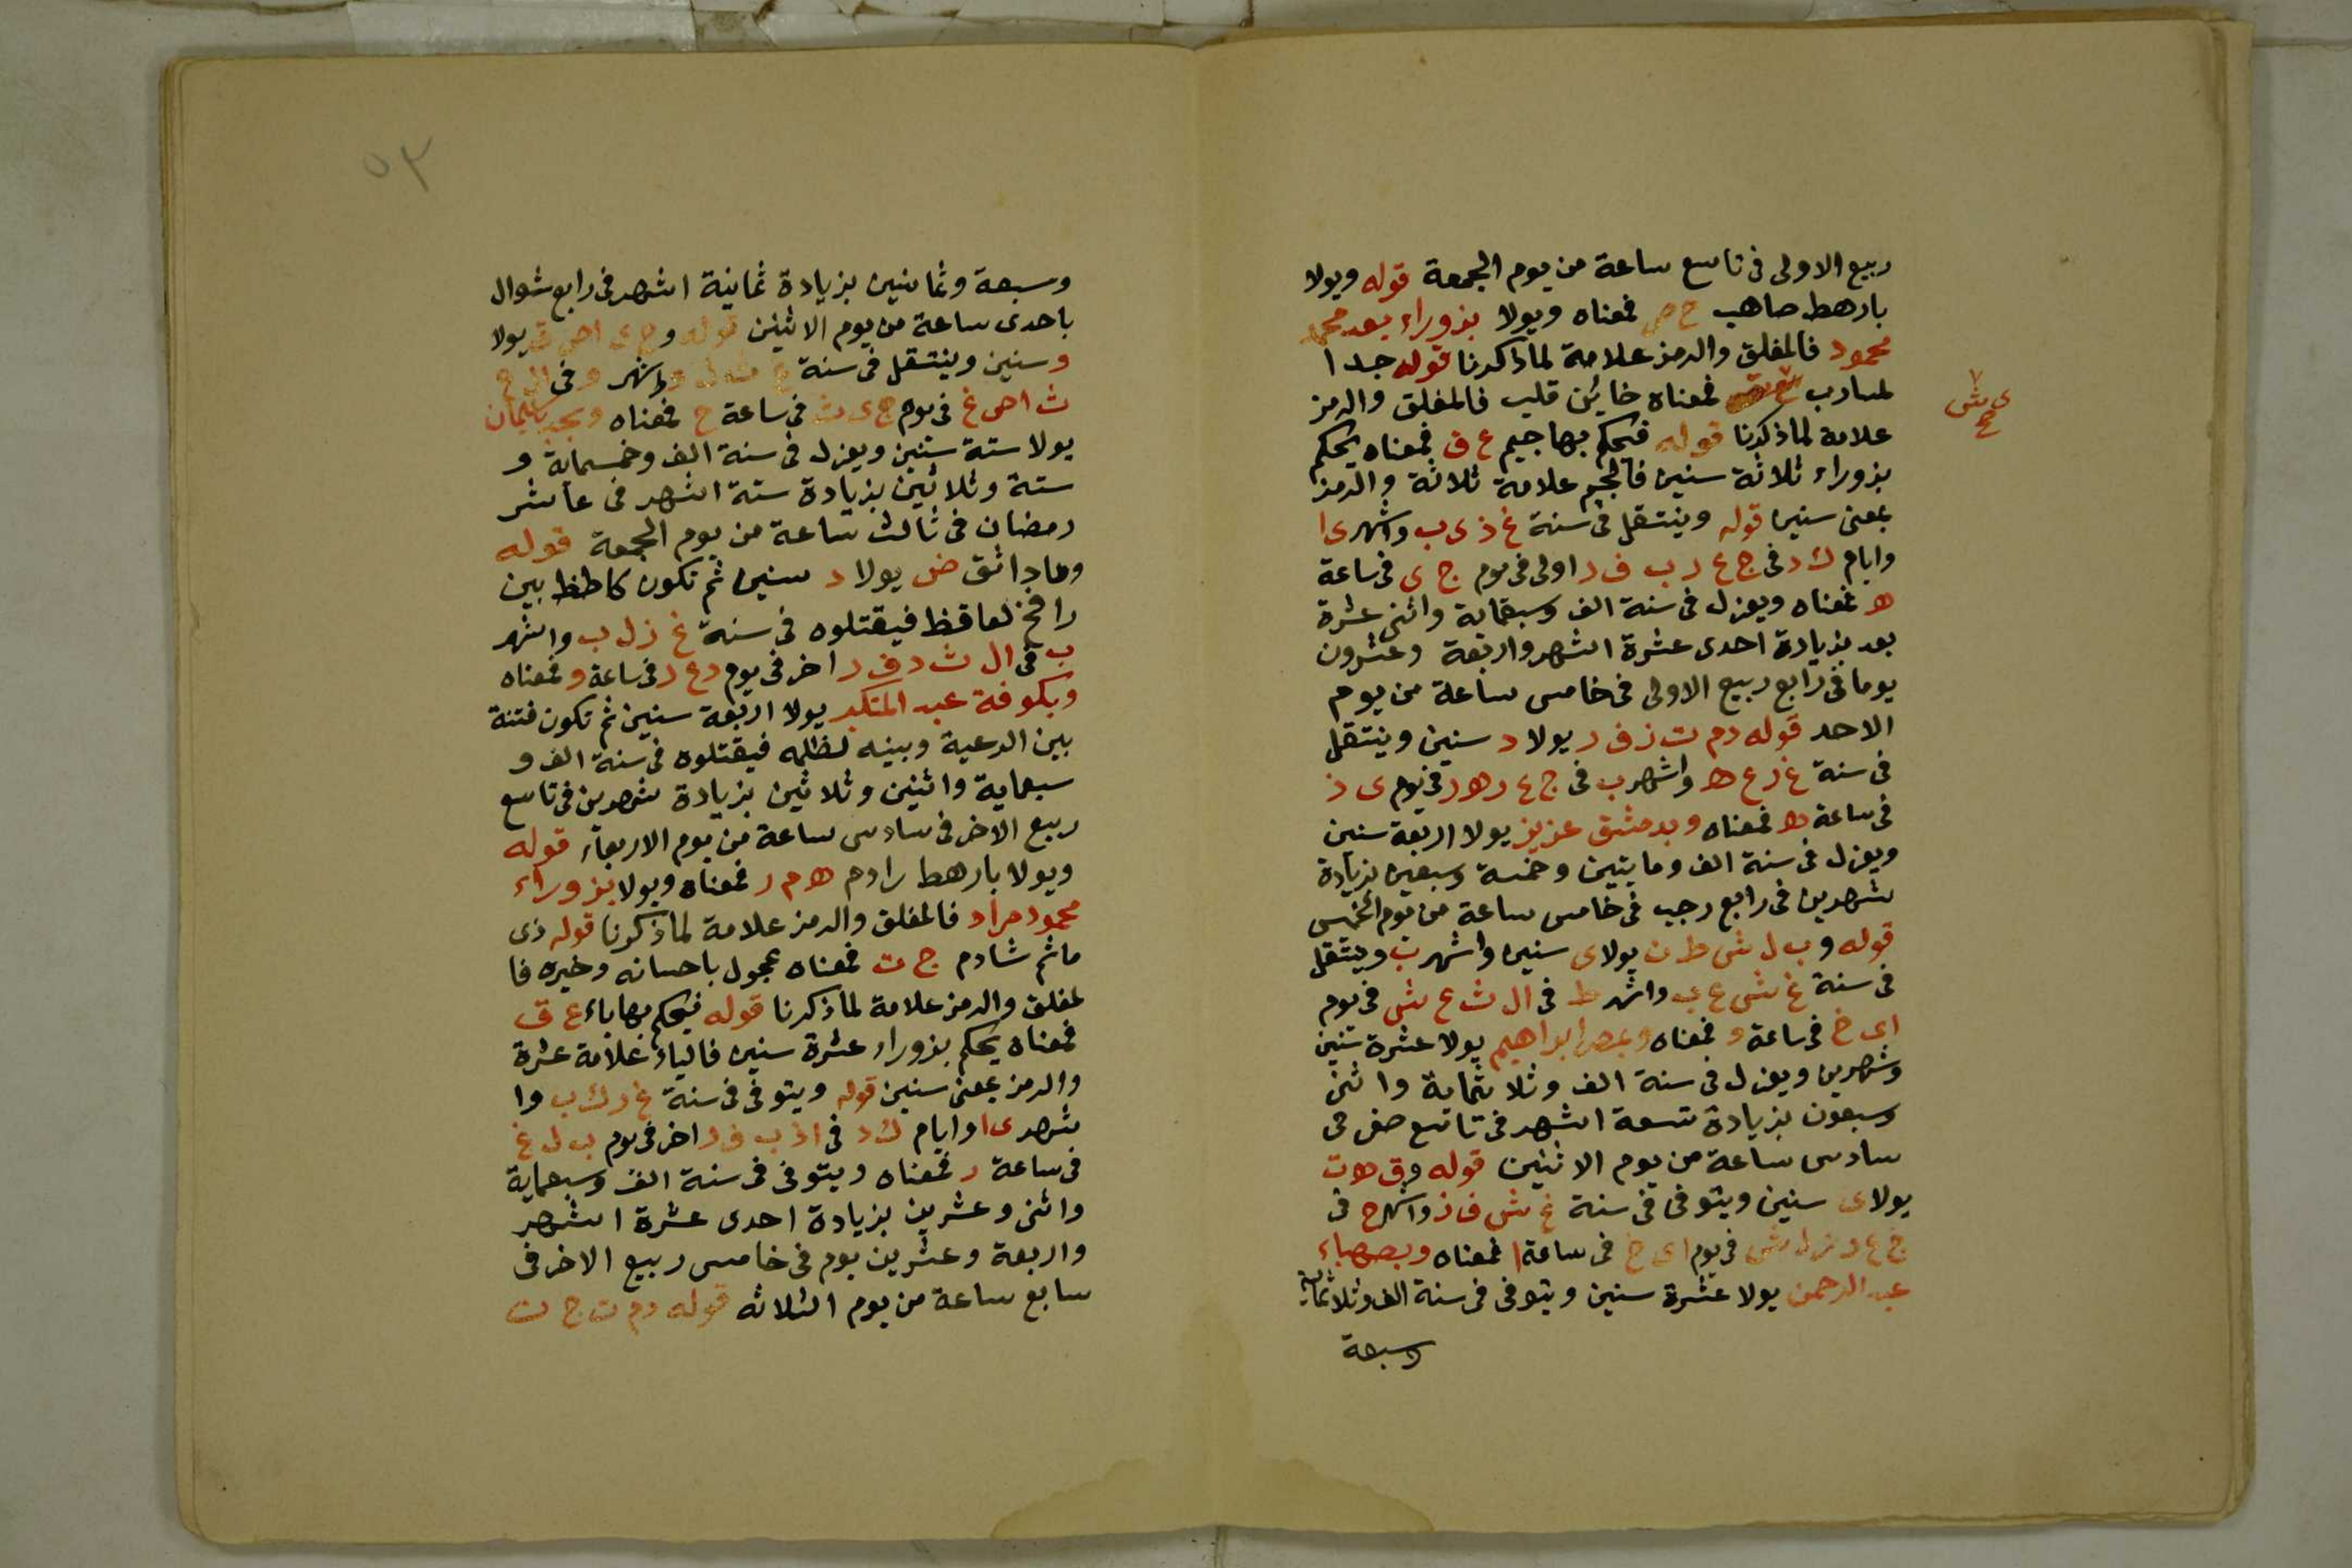 ربيع الاولى فى تاسع ساعة من يوم الجمعة قوله ويولا
بارهط صاهب ح ص فمعناه ويولا بزوراء بعد محمد
محمود فالمغلق والرمز علامة لما ذكرنا قوله جدا
لمسارب فمعناه خائن قلب فالمغلق والرمز
ى ش ح
علامة لما ذكرنا قوله فيحكم بها جيم ع ق فمعناه يحكم
بزوراء ثلاثة سنين فالجيم علامة ثلاثة والرمز
بمعنى سنين قوله وينتقل فى سنة غ ذ ى ب واشهر ى ا
وايام ك د فى ج ع ر ب ف ر اولى فى يوم ج ى فى ساعة
ه فمعناه ويعزل فى سنة الف وسبعماية واثنى عشرة
بعد بزيادة احدى عشرة اشهر واربعة وعشرون
يوما فى رابع ربيع الاولى فى خامس ساعة من يوم
الاحد قوله دم ت ز ف ر يولا د سنين وينتقل
فى سنة غ ر ع ه واشهر ب فى ج ع ر ه ر فى يوم ى ذ
فى ساعة ه فمعناه وبدمشق عزيز يولا اربعة سنين
ويعزل فى سنة الف ومايتين وخمسة وسبعين بزيادة
شهرين فى رابع رجب فى خامس ساعة من يوم الخميس
قوله وب ل ش ط ن يولا ى سنين واشهر ب وينتقل
فى سنة غ ش ع ب واشهر ط فى ال ث ع ش فى يوم
اى خ فى ساعة و فمعناه وبمصر ابراهيم يولا عشرة سنين
وشهرين ويعزل فى سنة الف وثلاثماية واثنى
وسبعون بزيادة تسعة اشهر فى تاسع صفر فى
سادس ساعة من يوم الاثنين قوله وق ه ت
يولا ى سنين ويتوفى فى سنة غ ش ف ز واشهر ح فى
ج ع د ش فى يوم اى خ فى ساعة ا فمعناه وبصهباء
عبد الرحمن يولا عشرة سنين ويتوفى فى سنة الف وثلاثماية
وسبعة
٥٣
وسبعة وثمانين بزيادة ثمانية اشهر فى رابع شوال
باحدى ساعة من يوم الاثنين قوله وج ى اص ق يولا
وسنين وينتقل فى سنة واشهر و فى ال ح
ث اص غ فى يوم ج ى ث فى ساعة ج فمعناه وبجد سليمان
يولا ستة سنين ويعزل فى سنة الف وخمسماية و
ستة وثلاثين بزيادة ستة اشهر فى عاشر
رمضان فى ثالث ساعة من يوم الجمعة قوله
وهادائق ض يولا د سنين ثم تكون كاطظ بين
رافخ لعاقظ فيقتلوه فى سنة غ ذ ل ب واشهر
ب فى ال ث د ف ر اخر فى يوم د ع ر فى ساعة و فمعناه
وبكوفة عبد المتكبر يولا اربعة سنين ثم تكون فتنة
بين الرعية وبينه لظلمه فيقتلوه فى سنة الف و
سبعماية واثنين وثلاثين بزيادة شهرين فى تاسع
ربيع الاخر فى سادس ساعة من يوم الاربعاء قوله
ويولا بارهط رادم ه م ر فمعناه ويولا بزوراء
محمود مراد فالمغلق والرمز علامة لما ذكرنا قوله ذى
ماثم شادم ج ت فمعناه عجول باحسانه وخيره فا
لمغلق والرمز علامة لما ذكرنا قوله فيحكم بها ياء ع ق
فمعناه يحكم بزوراء عشرة سنين فالياء علامة عشرة
والرمز بمعنى سنين قوله ويتوفى فى سنة غ ذ ك ب وا
شهر ى ا وايام ك د فى اذ ب ف ر اخر فى يوم ب ل غ
فى ساعة ر فمعناه ويتوفى فى سنة الف وسبعماية
واثنى وعشرين بزيادة احدى عشرة اشهر
واربعة وعشرين يوم فى خامس ربيع الاخر فى
سابع ساعة من يوم الثلاثه قوله دم ت ج ت